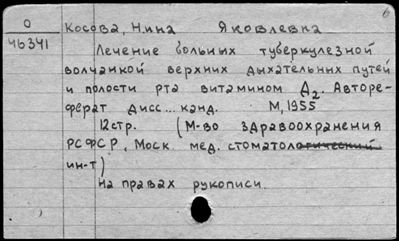 6
О
46341
Косова, Нина Яковлевна
Лечение больных туберкулезной
волчанкой верхних дыхательных путей
и полости рта витамином Д2. Авторе-
ферат дисс... канд. М, 1955
12стр. (М-во здравоохранения
РСФСР. Моск. мед. стоматологический
ин-т)
На правах рукописи.